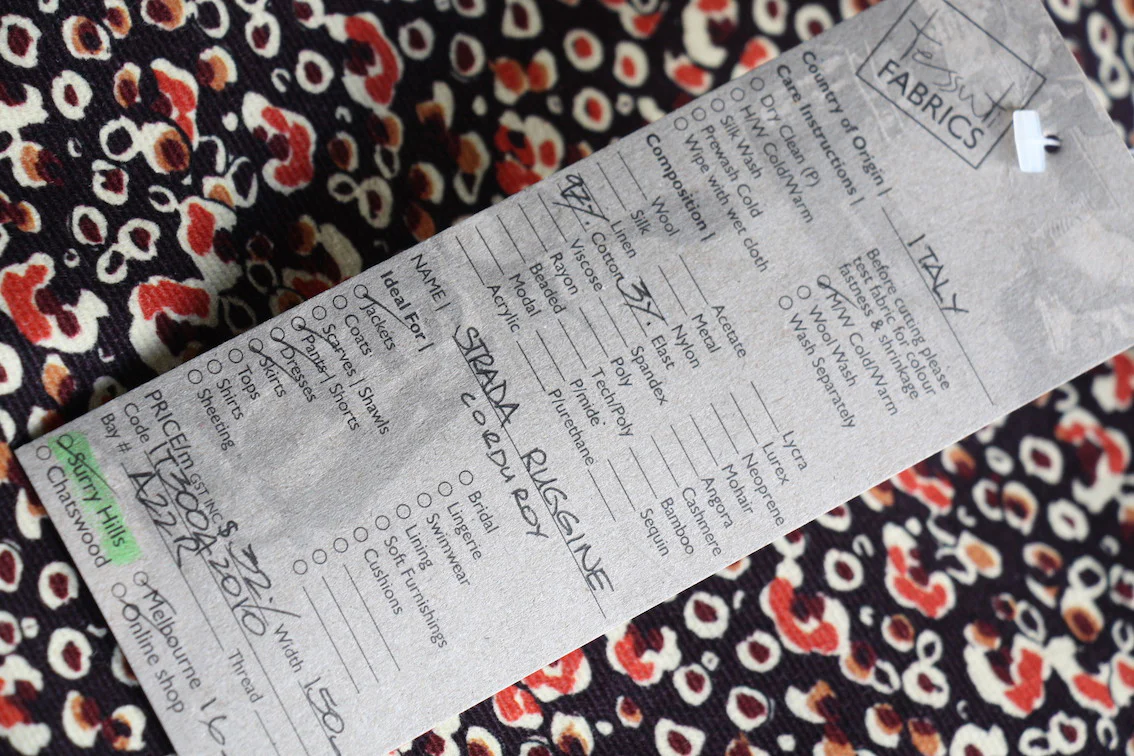 tessuti
FABRICS
Country of Origin | ITALY
Care Instructions |
Dry Clean (P)
H/W Cold/Warm
Silk Wash
Prewash Cold
Wipe with wet cloth
Before cutting please
test fabric for colour
fastness & shrinkage
M/W Cold/Warm
Wool Wash
Wash Separately
Composition |
Wool
Silk
Linen
97% Cotton
Viscose
Rayon
Beaded
Modal
Acrylic
Acetate
Metal
Nylon
3% Elast
Spandex
Poly
Tech/Poly
P/mide
P/urethane
Lycra
Lurex
Neoprene
Mohair
Angora
Cashmere
Bamboo
Sequin
NAME | STRADA RUGGINE
CORDUROY
Ideal For |
Jackets
Coats
Scarves | Shawls
Pants | Shorts
Dresses
Skirts
Tops
Shirts
Sheeting
Bridal
Lingerie
Swimwear
Lining
Soft Furnishings
Cushions
PRICE/m GST INC $ 32./ Width 150
Code IT30042010
Bay # A22R Thread
Surry Hills
Chatswood
Melbourne 16
Online shop